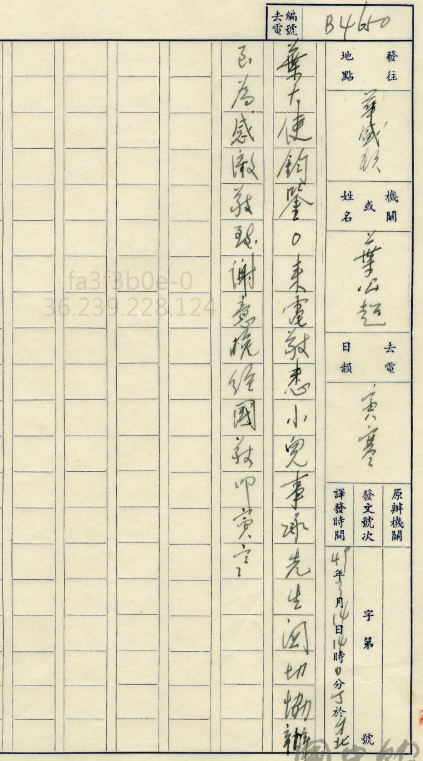 編號
去電
B4650
發往
地點
華盛頓
機關
或
姓名
葉公超
去電
日韻
寅寒
原辦機關
發文號次
字第 號
譯發時間
49年3月14日14時0分丁於台北
葉大使鈞鑒0來電敬悉小兒事承先生関切協辦
至為感激敬致謝意晚經國敬叩寅寒
fa3f3b0e-0
36.239.228.124